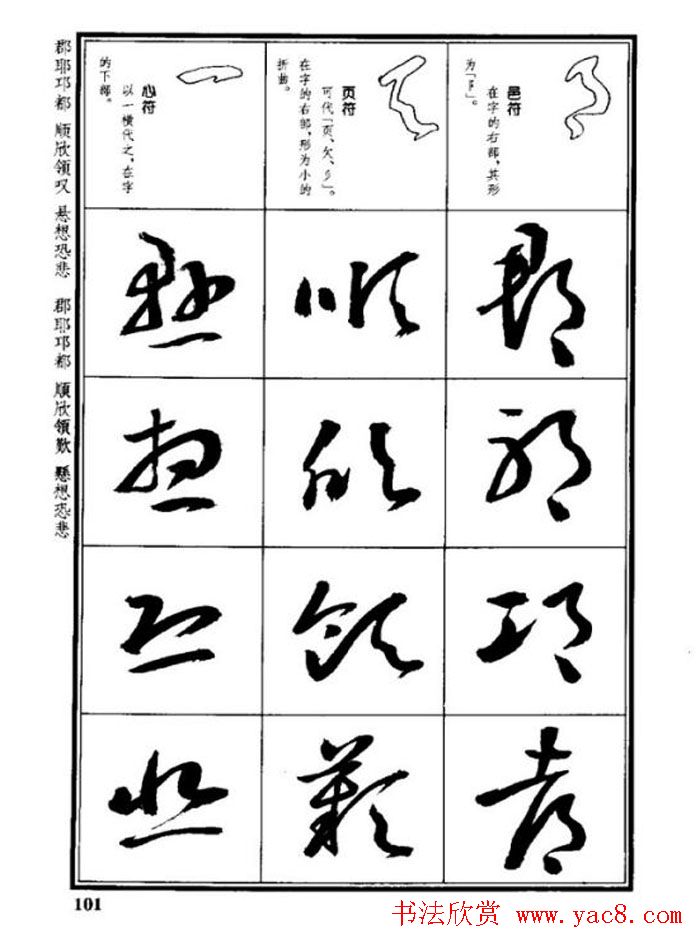 邑符
在字的右部，其形
为「阝」。
页符
可代「页、欠、彡」。
在字的右部，形为小的
折曲。
心符
以一横代之，在字
的下部。
郡 順 懸
耶 欣 想
邛 領 恐
都 歎 悲
郡耶邛都 顺欣领叹 悬想恐悲 郡耶邛都 順欣領歎 懸想恐悲
101
书法欣赏 www.yac8.com